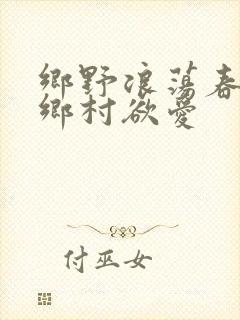 鄉野浪蕩春
鄉村欲愛
付巫女